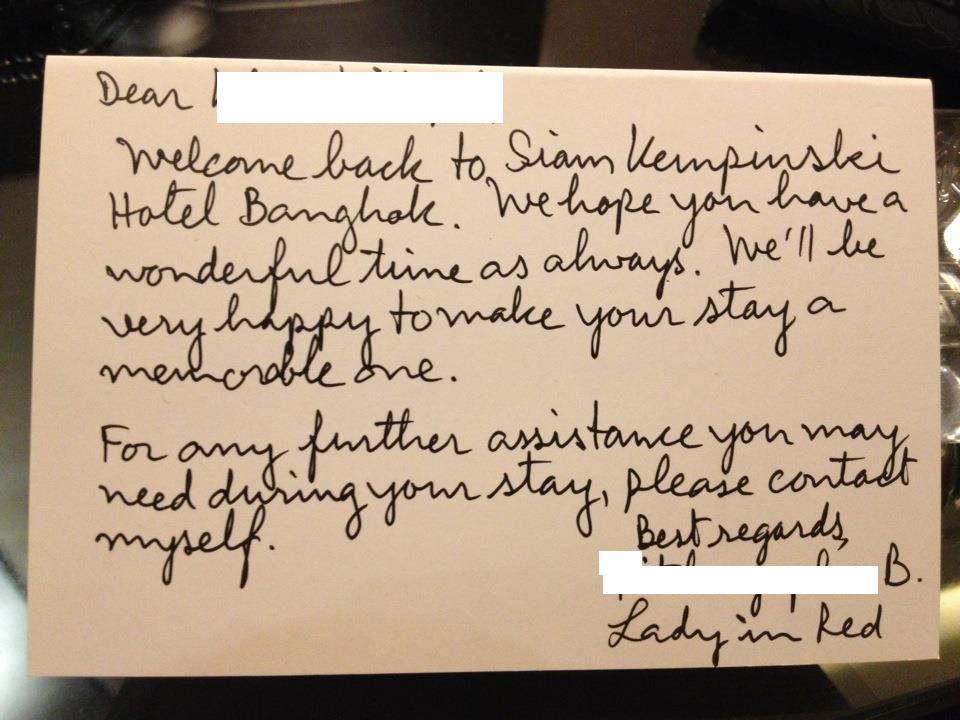 Dear
Welcome back to Siam Kempinski
Hotel Bangkok. We hope you have a
wonderful time as always. We'll be
very happy to make your stay a
memorable one.
For any further assistance you may
need during your stay, please contact
myself.
Best regards,
B.
Lady in Red